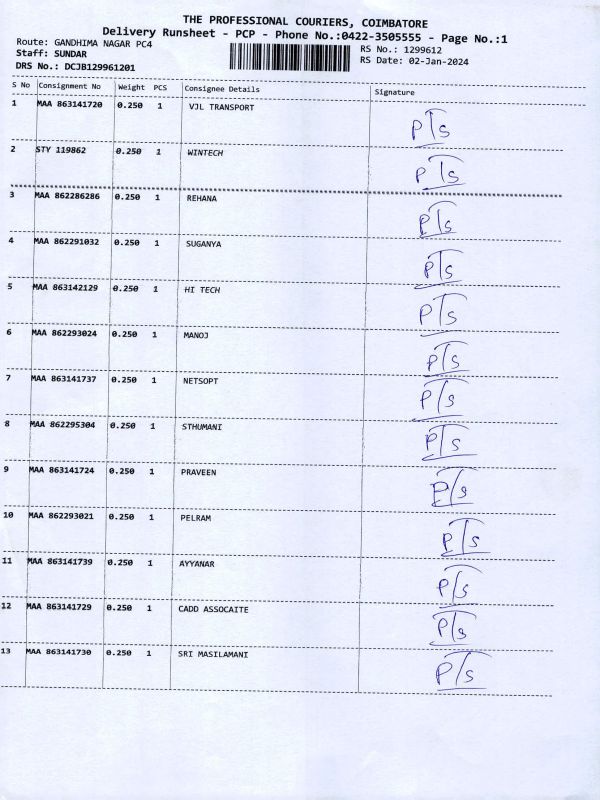 THE PROFESSIONAL COURIERS, COIMBATORE
Delivery Runsheet - PCP - Phone No.:0422-3505555 - Page No.:1
Route: GANDHIMA NAGAR PC4
RS No.: 1299612
Staff: SUNDAR
RS Date: 02-Jan-2024
DRS No.: DCJB129961201
S No Consignment No Weight PCS Consignee Details Signature
1 MAA 863141720 0.250 1 VJL TRANSPORT P/s
2 STY 119862 0.250 1 WINTECH P/s
3 MAA 862286286 0.250 1 REHANA P/s
4 MAA 862291032 0.250 1 SUGANYA P/s
5 MAA 863142129 0.250 1 HI TECH P/s
6 MAA 862293024 0.250 1 MANOJ P/s
7 MAA 863141737 0.250 1 NETSOPT P/s
8 MAA 862295304 0.250 1 STHUMANI P/s
9 MAA 863141724 0.250 1 PRAVEEN P/s
10 MAA 862293021 0.250 1 PELRAM P/s
11 MAA 863141739 0.250 1 AYYANAR P/s
12 MAA 863141729 0.250 1 CADD ASSOCAITE P/s
13 MAA 863141730 0.250 1 SRI MASILAMANI P/s